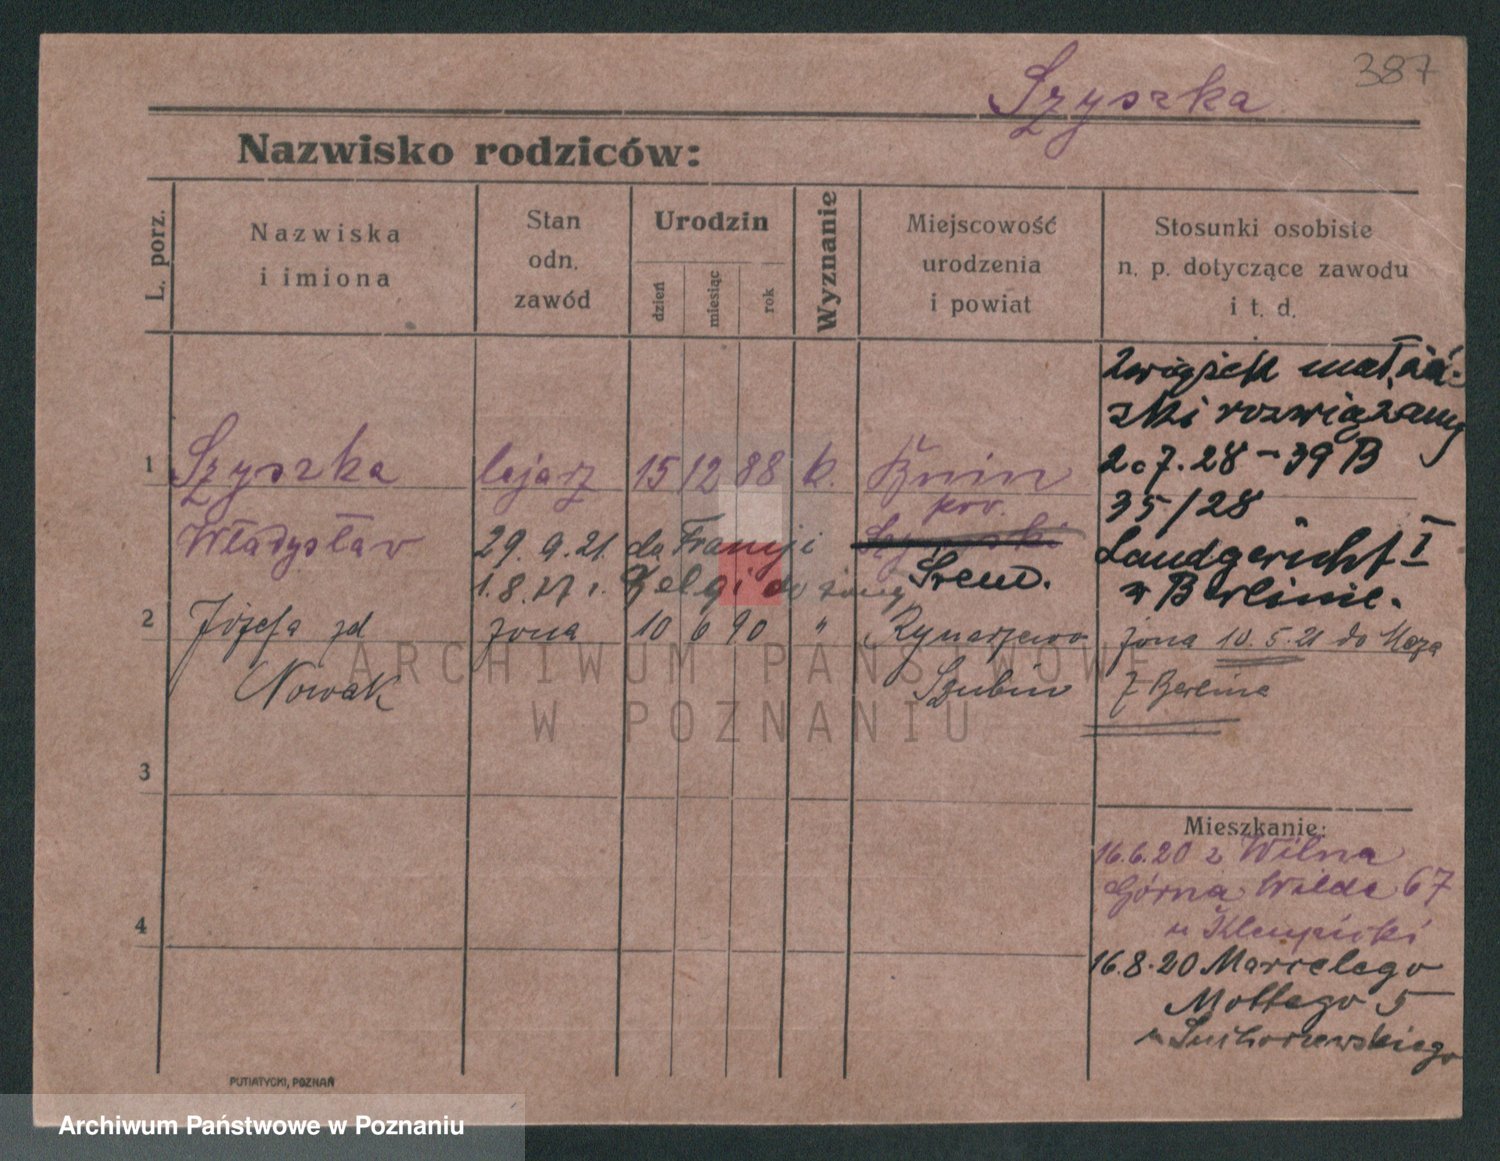 387
Szyszka
Nazwisko rodziców:
L. porz.
Nazwiska
i imiona
Stan
odn.
zawód
Urodzin
dzień
miesiąc
rok
Wyznanie
Miejscowość
urodzenia
i powiat
Stosunki osobiste
n. p. dotyczące zawodu
i t. d.
związek małżeń-
ski rozwiązany
2.7.28 - 39 B
35/28
Landgericht I
w Berlinie.
1 Szyszka 15 12 88 k. Bnin
pow.
Władysław
29.9.21. do Francji
Śrem.
1.8. Belgi do żony
2 Józefa zd żona 10 6 90 " Rynarzewo
Nowak Szubin
żona 10.5.21 do męża
z Berlina
3
4
Mieszkanie:
16.6.20 z Wilna
Górna Wilda 67
u
16.8.20 Marcelego
Mottego 5
u Suchorzewskiego
PUTIATYCKI, POZNAŃ
ARCHIWUM PAŃSTWOWE
W POZNANIU
Archiwum Państwowe w Poznaniu